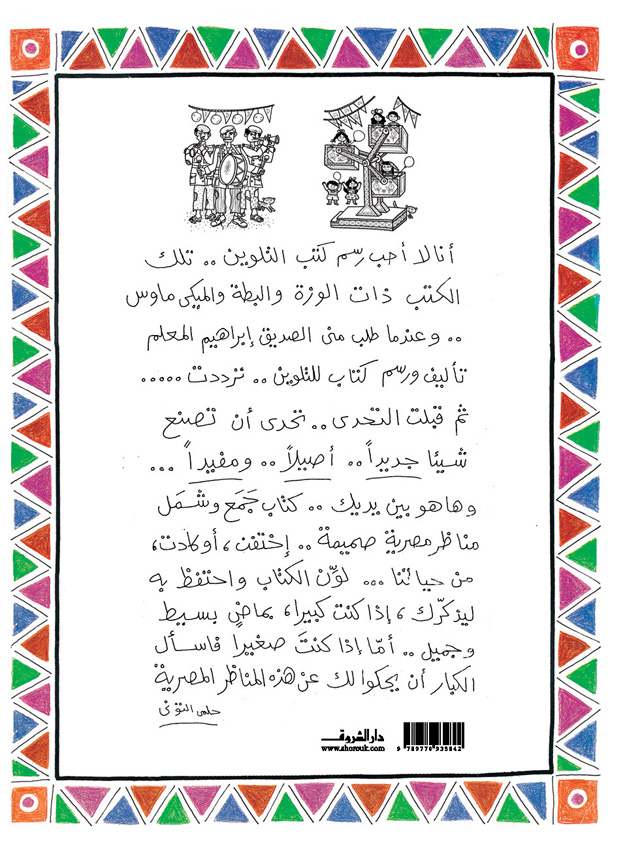 أنا لا أحب رسم كتب التلوين .. تلك
الكتب ذات الوزة والبطة والميكى ماوس
.. وعندما طلب منى الصديق إبراهيم المعلم
تأليف ورسم كتاب للتلوين .. ترددت .....
ثم قبلت التحدى .. تحدى أن تصنع
شيئا جديداً .. أصيلاً .. ومفيداً ...
وها هو بين يديك .. كتاب جَمَع وشَمَل
مناظر مصرية صميمة .. إختفت ، أو كادت ،
من حياتنا ... لوِّن الكتاب واحتفظ به
ليذكرّك ، إذا كنت كبيرا ، بماضٍ بسيط
وجميل .. أمّا إذا كنتَ صغيرا فاسأل
الكبار أن يحكوا لك عن هذه المناظر المصرية
حلمى التونى
دار الشروق
www.shorouk.com
9 789770 935842